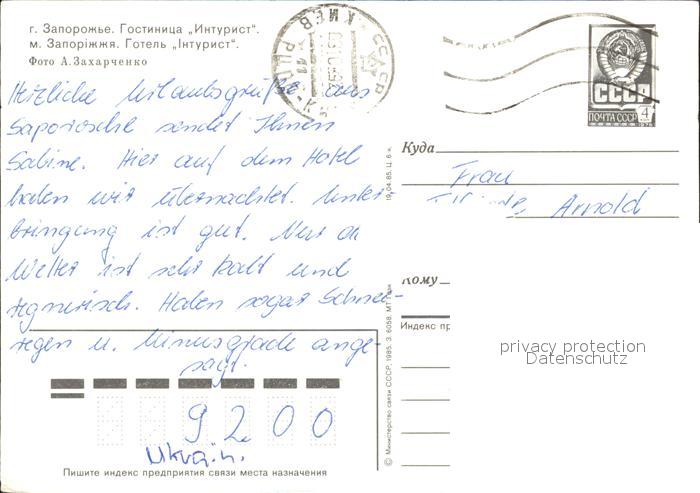 г. Запорожье. Гостиница „Интурист“.
м. Запоріжжя. Готель „Інтурист“.
Фото А. Захарченко
Herzliche Urlaubsgrüße aus
Saporoschje sendet Ihnen
Sabine. Hier auf dem Hotel
haben wir übernachtet. Unter-
bringung ist gut. Nur
Wetter ist sehr kalt und
regnerisch. Haben sogar Schnee-
regen u. Minusgrade ange-
sagt.
9200
Пишите индекс предприятия связи места назначения
КИЕВ
СССР
СССР
ПОЧТА СССР 4
Куда
Frau
Arnold
Кому
Индекс пр
privacy protection
Datenschutz
19.04.85. Ц. 6 к.
© Министерство связи СССР, 1985. З. 6058. МТ Гознак